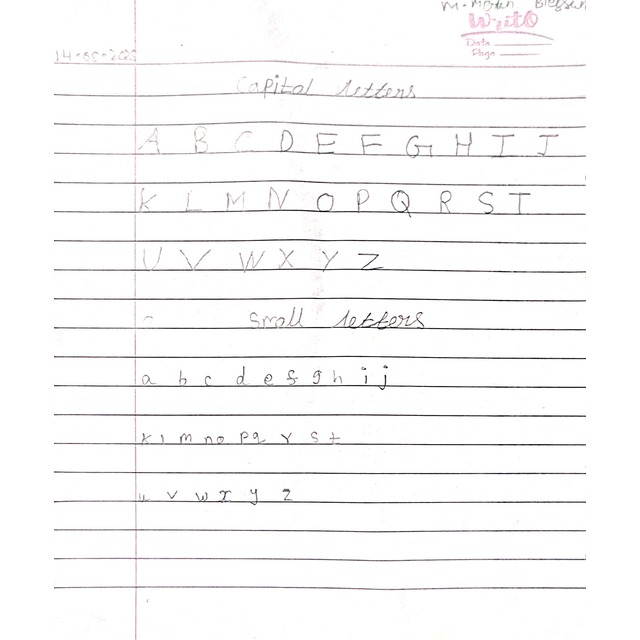 Write
Date
Page
Capital letters
A B C D E F G H I J
K L M N O P Q R S T
U V W X Y Z
Small letters
a b c d e f g h i j
k l m n o p q r s t
u v w x y z